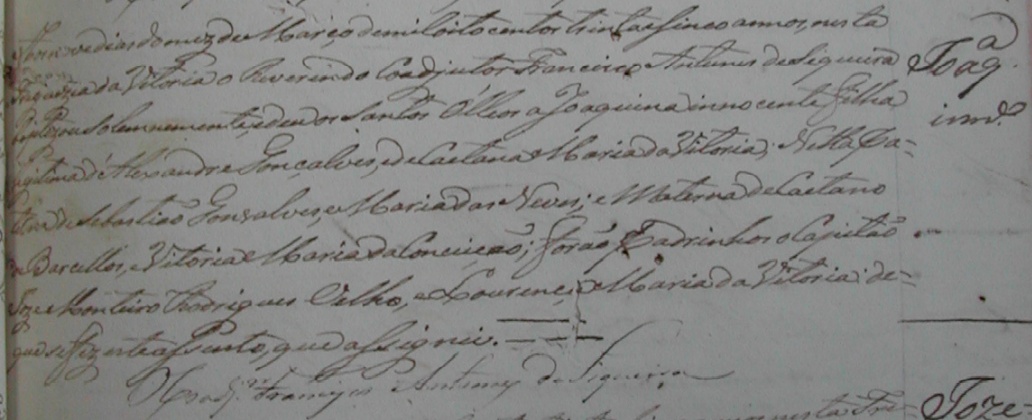 nove dias do mez de Março de mil oito centos trinta e sinco annos, nesta
Freguezia da Vitoria o Reverendo Coadjutor Francisco Antunes de Siqueira
Baptizou solemnemente, e deu os Santos Olleos a Joaquina innocente filha
legitima de Alexandre Gonçalves, e de Caetana Maria da Vitoria; Netta Pa=
terna de Sebastião Gonsalves, e Maria das Neves; e Materna de Caetano
de Barcellos, e Vitoria Maria da Conceição; forão Padrinhos o Capitão
Joze Monteiro Rodrigues Velho, e Lourença Maria da Vitoria: de=
que se fiz este assento, que assignei.
O Coadj.or Francisco Antunes de Siqueira
Joaq.a
innd.e
Joze